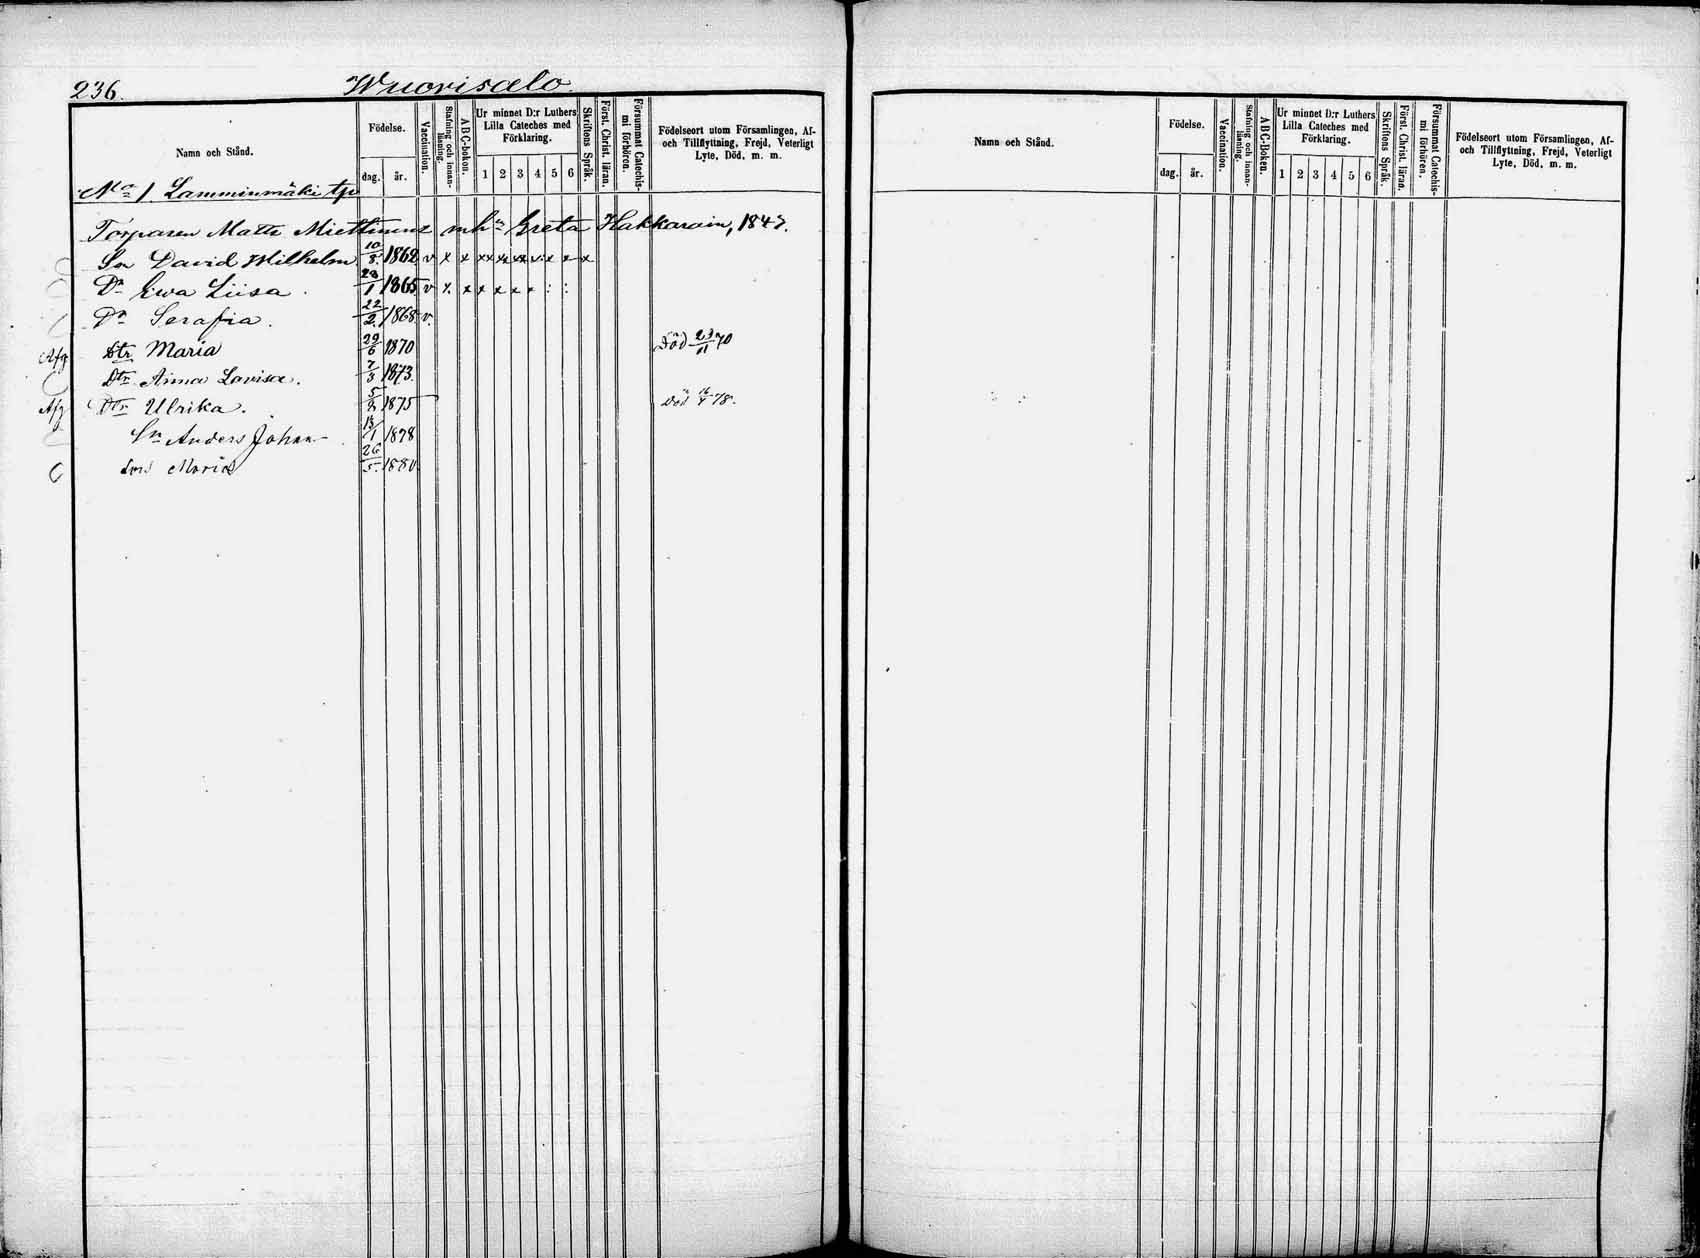 236. Wuorisalo.
Namn och Stånd. Födelse. dag. år. Vaccination. Stafning och innanläsning. ABC-boken. Ur minnet D:r Luthers Lilla Cateches med Förklaring. 1 2 3 4 5 6 Skriftens Språk. Först. Christ. läran. Försummat Catechismi förhören. Födelseort utom Församlingen, Af- och Tillflyttning, Frejd, Veterligt Lyte, Död, m. m.
No 1 Lamminmäki tp
Torparen Matts Miettinens mhu Greta Hakkarain, 1847.
Sn David Wilhelm 10/8 1862 v x x xx xx xx x x x
Dr Ewa Liisa. 23/1 1865 v x x x x x x : :
Dr Serafia. 22/2 1868 v.
Afg Dtr Maria 29/6 1870 Död 23/11 70
Dtr Anna Lovisa. 7/3 1873.
Afg Dtr Ulrika. 1875 Död 78.
Sn Anders Johan 13/1 1878
Maria 26/5 1880
Namn och Stånd. Födelse. dag. år. Vaccination. Stafning och innanläsning. ABC-Boken. Ur minnet D:r Luthers Lilla Cateches med Förklaring. 1 2 3 4 5 6 Skriftens Språk. Först. Christ. läran. Försummat Catechismi förhören. Födelseort utom Församlingen, Af- och Tillflyttning, Frejd, Veterligt Lyte, Död, m. m.